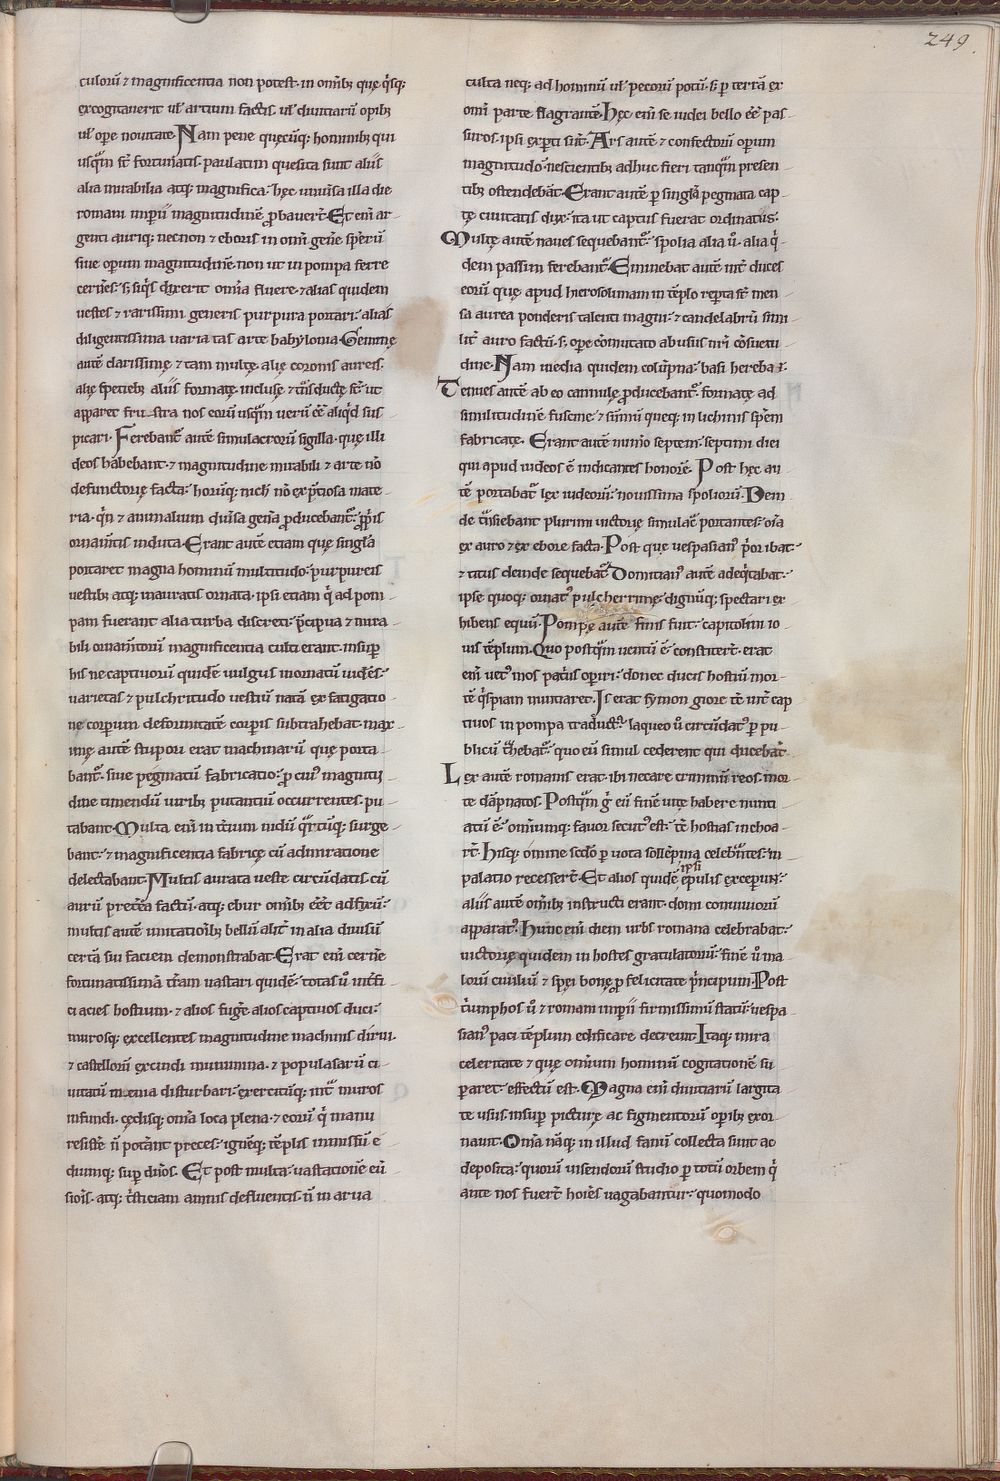 249.
culorū ⁊ magnificentia non potest. in omībꝫ quę q̇sq;
excogitauerit ul' artium factis. ul' diuitiarū opibꝫ
ul' ope nouitate. Nam pene quęcūq; hominibꝫ qui
usq̄m st̄ fortunatis. paulatim quesita sunt aliis
alia mirabilia atq; magnifica. hęc uniūsa illa die
romani impii magnitudinē ꝓbauer̄t. Et enī ar-
genti auriq; necnon ⁊ eboris in omī gen̄e spērū
siue operum magnitudinē. non ut in pompa ferre
cern̄es. s; siq̇s dixerit omīa fluere. ⁊ alias quidem
uestes ⁊ rarissim generis purpura portari. alias
diligentissima uarietas arte babylonia. Gemmę
autē clarissimę ⁊ tam multę. alię coronis aureis.
alię spetiebꝫ aliis formatę. incluse ⁊ tn̄sductę st̄. ut
apparet frustra nos eorū usq̄m uerū eē aliq̇d sus-
picari. Ferebant᷑ autē simulacrorū sigilla. quę illi
deos habebant. ⁊ magnitudine mirabili ⁊ arte nō
defunctorię facta. horūq; nich' nō ex p̄tiosa mate-
ria. q̄n ⁊ animalium diūsa gen̄a ꝓducebant᷑. ꝓp̄iis
ornam̄tis induta. Erant autē etiam quę singl'a
portaret magna hominū multitudo. purpureis
uestibꝫ atq; inauratis ornata. ipsi etiam q̇ ad pom-
pam fuerant alia turba discreti. p̄cipua ⁊ mira-
bili ornam̄torū magnificentia culti erant. insup
his ne captiuorū quidē uulgus inornatū uidēs.
uarietas ⁊ pulchritudo uestiū natā ex fatigatio-
ne corpum deformitatē corpis subtrahebat. max-
imę autē stupori erat machinarū quę porta-
bant᷑. siue pegmatū fabricatio. ꝓ cui᷒ magnitu-
dine timendū uiribꝫ putantiū occurrentes. pu-
tabant. Multa enī in tc̄ium nidū q̄rtūq; surge-
bant. ⁊ magnificentia fabricę cū admiratione
delectabant. Multis aurata ueste circūdatis. cū
aurū pret̄ea factū. atq; ebur omībꝫ eēt adfixū.
multis autē imitationibꝫ bellū alit̄ in alia diuisū
certā sui faciem demonstrabat. Erat enī cern̄e
fortunatissimā t̄ram uastari quidē. totas ū int̄fi-
ci acies hostium. ⁊ alios fuḡe alios captiuos duci.
murosq; excellentes magnitudine machinis dirui.
⁊ castellorū excindi munimina. ⁊ populosarū ci-
uitatū mœnia disturbari. exercitūq; int̄ muros
infundi. cędisq; omīa loca plena. ⁊ eorū q̇ manu
resist̄e n̄ potant preces. ignēq; tēplis inmissū e
diumq; sup dn̄os. Et post multā uastationē eū-
sionis. atq; t̄sticiam amnis defluentis. n̄ in arua
culta neq; ad hominū ul' pecorū potū. s; p terrā ex
omī parte flagrantē. Hęc enī se iudei bello eē pas-
suros. ipsi exp̄ti sūt. Ars autē ⁊ confectorū operum
magnitudo. nescientibꝫ adhuc fieri tanq̄m presen-
tibꝫ ostendebāt. Erant autē p singl'a pegmata cap-
tę ciuitatis dux. ita ut captus fuerat ordinatus.
Multę autē naues sequebant᷑. spolia alia ū. alia q̇-
dem passim ferebant᷑. Eminebat autē int̄ duces
eorū quę apud hierosolimam in tēplo reperta st̄. men-
sa aurea ponderis talenti magni. ⁊ candelabrū simi-
lit̄ auro factū. s; ope c̄omutato ab usus nr̄i c̄osuetu-
dine. Nam media quidem colūpna. basi hereba t.
Tenues autē ab eo cannulę ꝓducebant᷑. formatę ad
similitudinē fuscine ⁊ sūmū queq; in lichinis spēm
fabricatę. Erant autē numo septem. septimi diei
qui apud iudeos ē indicantes honorē. Post hęc au-
tē portabat᷑ lex iudeorū. nouissima spoliorū. Dein-
de tn̄siebant plurimi uictorię simulac̄ portantes. oīa
ex auro ⁊ ex ebore facta. Post quę uespasian᷒ p̄or ibat.
⁊ titus deinde sequebat᷑. Domitian᷒ autē adeq̇tabat.
ipse quoq; ornat᷒ pulcherrimę. dignūq; spectari ex-
hibens equū. Pompę autē finis fuit. capitolini io-
uis tēplum. Quo postq̄m uentū ē. constiter̄t. erat
enī uet᷒ mos pat̄us opiri. donec ducis hostiū mor-
tē q̇spiam nuntiaret. Is erat symon giore. tc̄ int̄ cap-
tiuos in pompa traduct᷒. laqueo ū circūdat᷒ p pu-
blicū t̄hebat᷑. quo eū simul cederent qui ducebat.
Lex autē romanis erat. ibi necare criminū reos. mor-
te dāpnatos. Postq̄m ḡ eū finē uitę habere nunti-
atū ē. omniumq; fauor secut᷒ est. tc̄ hostias inchoa-
rt̄. Hisq; omine scdo p uota sollēpnia celebn̄tes. in
palatio recesser̄t. Et alios quidē ipsi epulis exceperunt.
aliis autē omībꝫ instructi erant. domi conuiuiorū
apparat᷒. Hunc enī diem urbs romana celebrabat.
uictorię quidem in hostes gratulatoriū. finē ū ma-
lorū ciuiliū ⁊ spei bonę ꝓ felicitate p̄ncipum. Post
t̄umphos ū ⁊ romani impii firmissimū statū. uespa-
sian᷒ paci tēplum edificare decreuit. Itaq; mira
celeritate ⁊ quę omium hominū cogitationē su-
paret. effectū est. Magna enī diuitiarū largita-
te usus. insup picturę ac figmentorū opibꝫ exor-
nauit. Omīa nāq; in illud fanū collecta sunt ac
deposita. quorū uisendorū studio p totū orbem q̇
ante nos fuer̄t hoīes uagabantur. quomodo